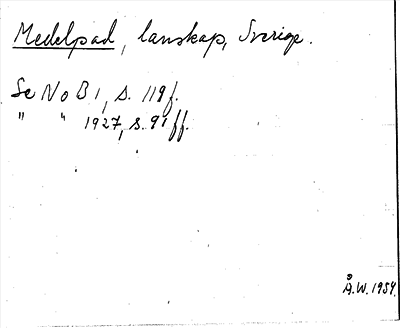 Medelpad, lanskap, Sverige.
Se NoB 1, s. 119f.
" " 1927, s. 91 ff.
Å.W. 1954.